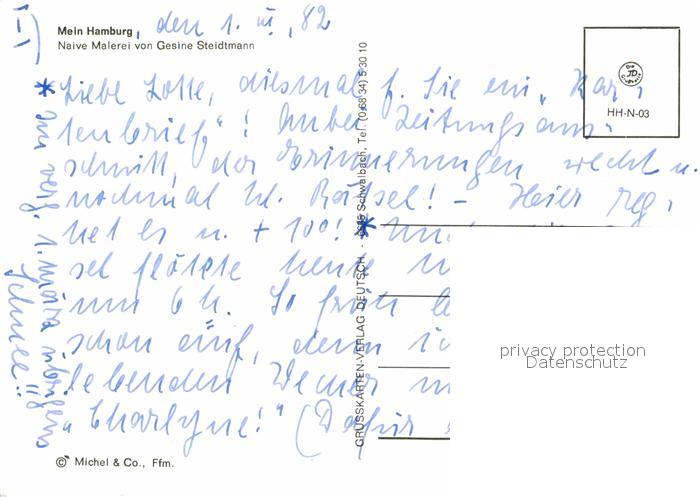 Mein Hamburg, den 1. III. 82
Naive Malerei von Gesine Steidtmann
HH-N-03
*Liebe Lotte, diesmal f. Sie ein „Kar-
tenbrief“! Anbei Zeitungsaus-
schnitt, der Erinnerungen weckt u.
nochmal Rätsel! - Hier reg-
net es u. + 10°! *
sel flötete heute
um 6 h. So früh
schon auf, denn
lebenden Wecker
„Charlyne!“ (Dafür
* 1. März übrigens
Schnee!!
GRUSSKARTEN-VERLAG DEUTSCH · 6635 Schwalbach, Tel. (0 68 34) 5 30 10
© Michel & Co., Ffm.
privacy protection
Datenschutz